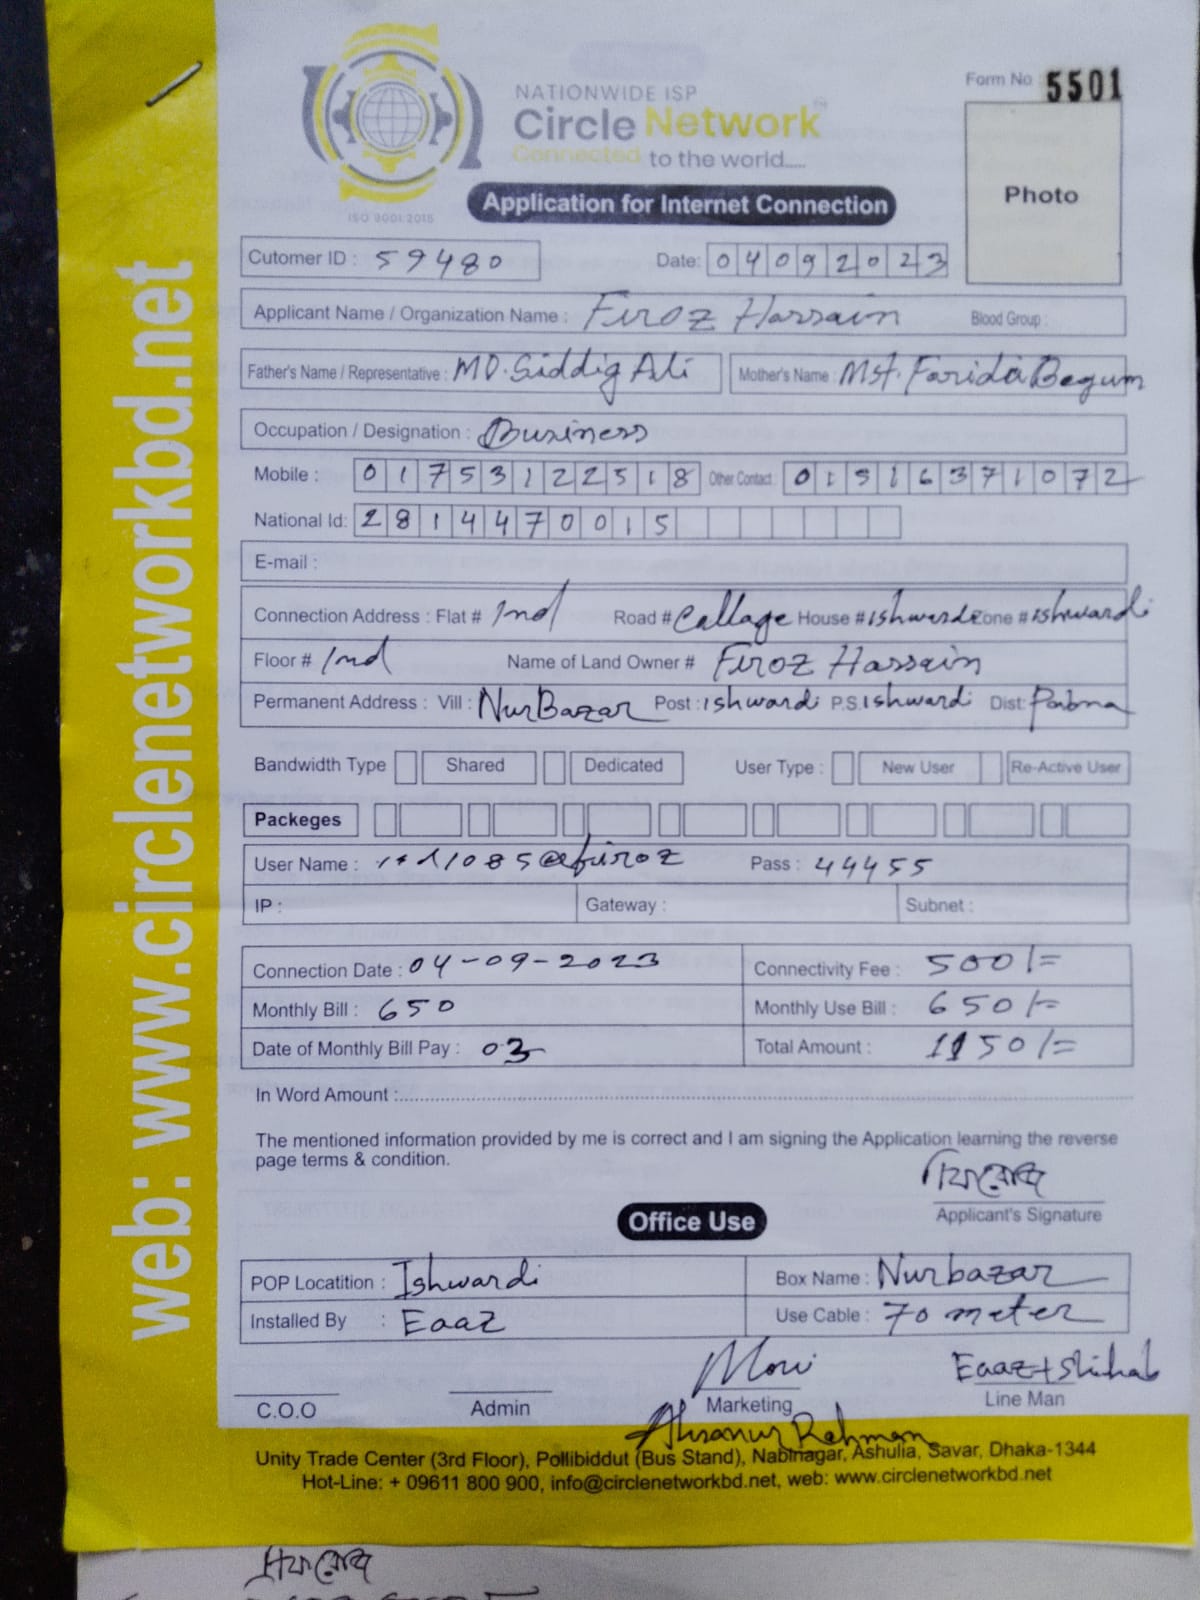 Form No 5501
NATIONWIDE ISP
Circle Network
Connected to the world.....
ISO 9001:2015
Photo
Application for Internet Connection
Cutomer ID : 59480 Date: 04092023
Applicant Name / Organization Name : Firoz Hassain Blood Group :
Father's Name / Representative : MD. Siddig Ali Mother's Name : Mst. Farida Begum
Occupation / Designation : Business
Mobile : 01753122518 Other Contact: 01516371072
National Id: 2814470015
E-mail :
Connection Address : Flat # 1nd Road # Callage House # ishwardi Zone # ishwardi
Floor # 1nd Name of Land Owner # Firoz Hassain
Permanent Address : Vill : NurBazar Post : ishwardi P.S. ishwardi Dist: Pabna
Bandwidth Type Shared Dedicated User Type : New User Re-Active User
Packeges
User Name : Pass : 44455
IP : Gateway : Subnet :
Connection Date : 04-09-2023 Connectivity Fee : 500/=
Monthly Bill : 650 Monthly Use Bill : 650/=
Date of Monthly Bill Pay : 03 Total Amount : 1150/=
In Word Amount :
The mentioned information provided by me is correct and I am signing the Application learning the reverse
page terms & condition.
ফিরোজ
Applicant's Signature
Office Use
POP Locatition : Ishwardi Box Name : Nurbazar
Installed By : Eaaz Use Cable : 70 meter
Eaaz + Shihab
C.O.O Admin Marketing Line Man
Ahsanur Rahman
Unity Trade Center (3rd Floor), Pollibiddut (Bus Stand), Nabinagar, Ashulia, Savar, Dhaka-1344
Hot-Line: + 09611 800 900, info@circlenetworkbd.net, web: www.circlenetworkbd.net
web: www.circlenetworkbd.net
ফিরোজ